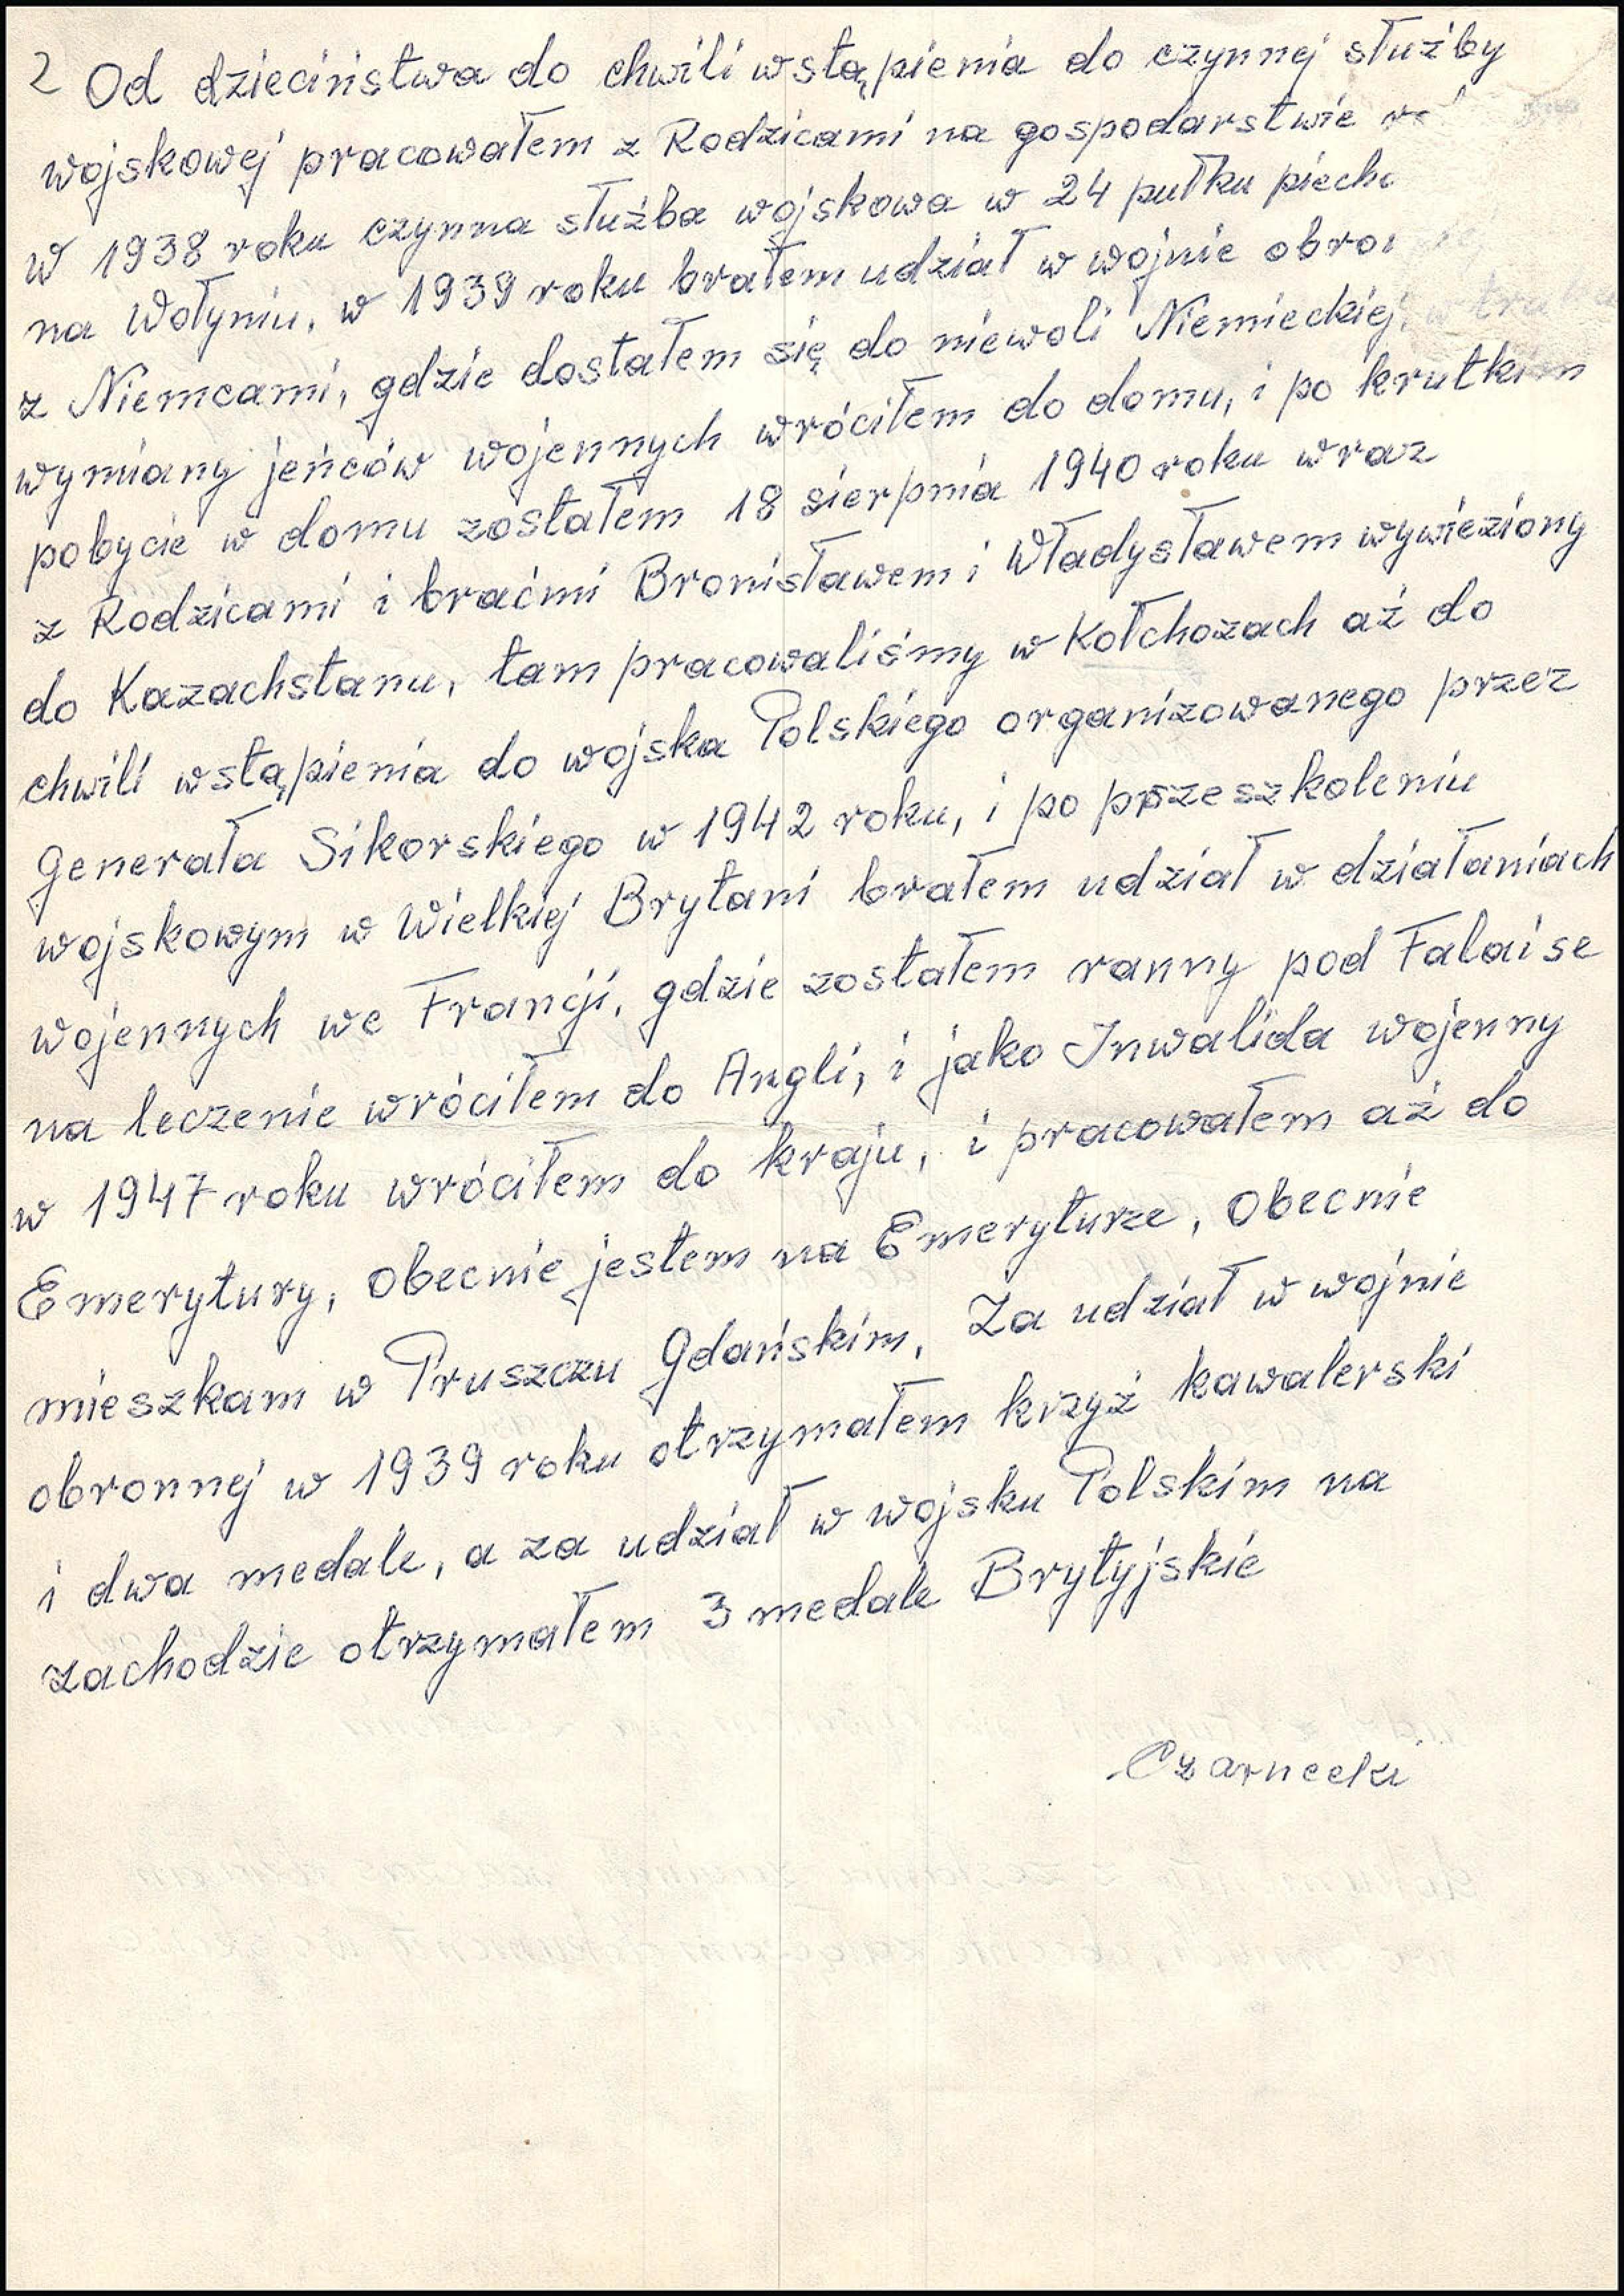 2 Od dzieciństwa do chwili wstąpienia do czynnej służby
wojskowej pracowałem z Rodzicami na gospodarstwie
w 1938 roku czynna służba wojskowa w 24 pułku piecho
na Wołyniu, w 1939 roku brałem udział w wojnie obron
z Niemcami, gdzie dostałem się do niewoli Niemieckiej, w
wymiany jeńców wojennych wróciłem do domu, i po krutkim
pobycie w domu zostałem 18 sierpnia 1940 roku wraz
z Rodzicami i braćmi Bronisławem i Władysławem wywieziony
do Kazachstanu, tam pracowaliśmy w Kołchozach aż do
chwili wstąpienia do wojska Polskiego organizowanego przez
Generała Sikorskiego w 1942 roku, i po przeszkoleniu
wojskowym w Wielkiej Brytani brałem udział w działaniach
wojennych we Francji, gdzie zostałem ranny pod Falaise
na leczenie wróciłem do Angli, i jako Inwalida wojenny
w 1947 roku wróciłem do kraju, i pracowałem aż do
Emerytury, obecnie jestem na Emeryturze, Obecnie
mieszkam w Pruszczu Gdańskim, Za udział w wojnie
obronnej w 1939 roku otrzymałem krzyż kawalerski
i dwa medale, a za udział w wojsku Polskim na
zachodzie otrzymałem 3 medale Brytyjskie
Czarnecki